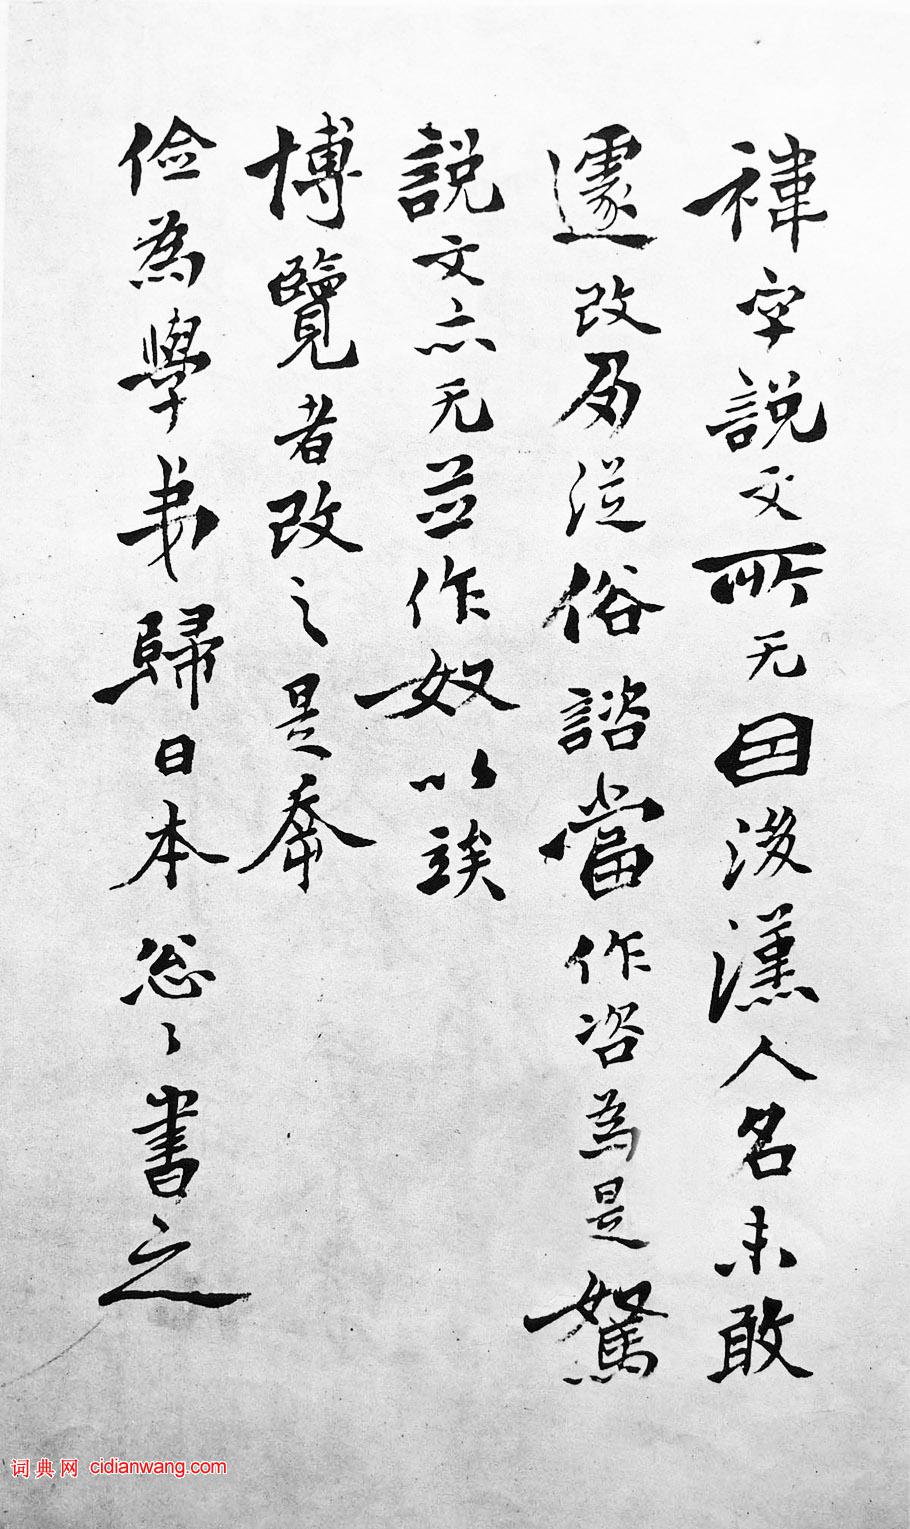 禕字說文所无因後漢人名未敢
遽改易從俗諮當作咨為是駑
說文亦无並作奴以竢
博覽者改之是奉
儉為學弟歸日本怱〻書之
词典网 cidianwang.com